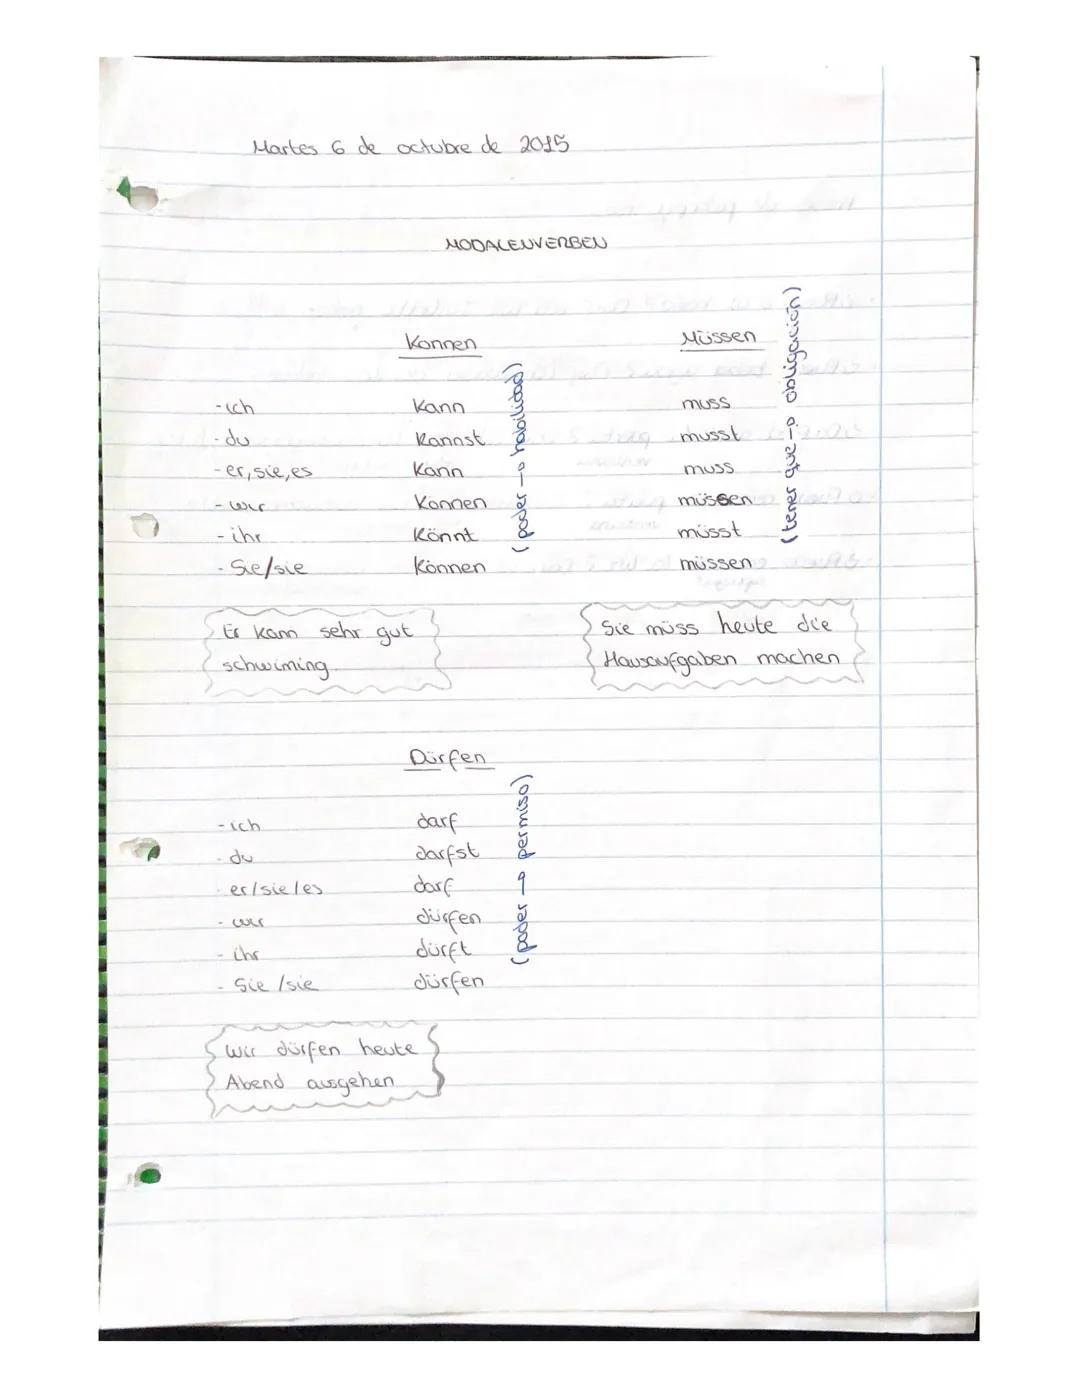 Martes 6 de octubre de 2015
MODALENVERBEN
Konnen
- ich kann
- du kannst
- er, sie, es kann
- wir Können
- ihr Könnt
- Sie/sie Können
(poder → habilidad)
Müssen
muss
musst
muss
müssen
müsst
müssen
(tener que → obligación)
Er kann sehr gut
schwiming
Sie müss heute die
Hausaufgaben machen
Dürfen
- ich darf
- du darfst
er/sie/es darf
- wir dürfen
- ihr dürft
- Sie/sie dürfen
(poder → permiso)
Wir dürfen heute
Abend ausgehen